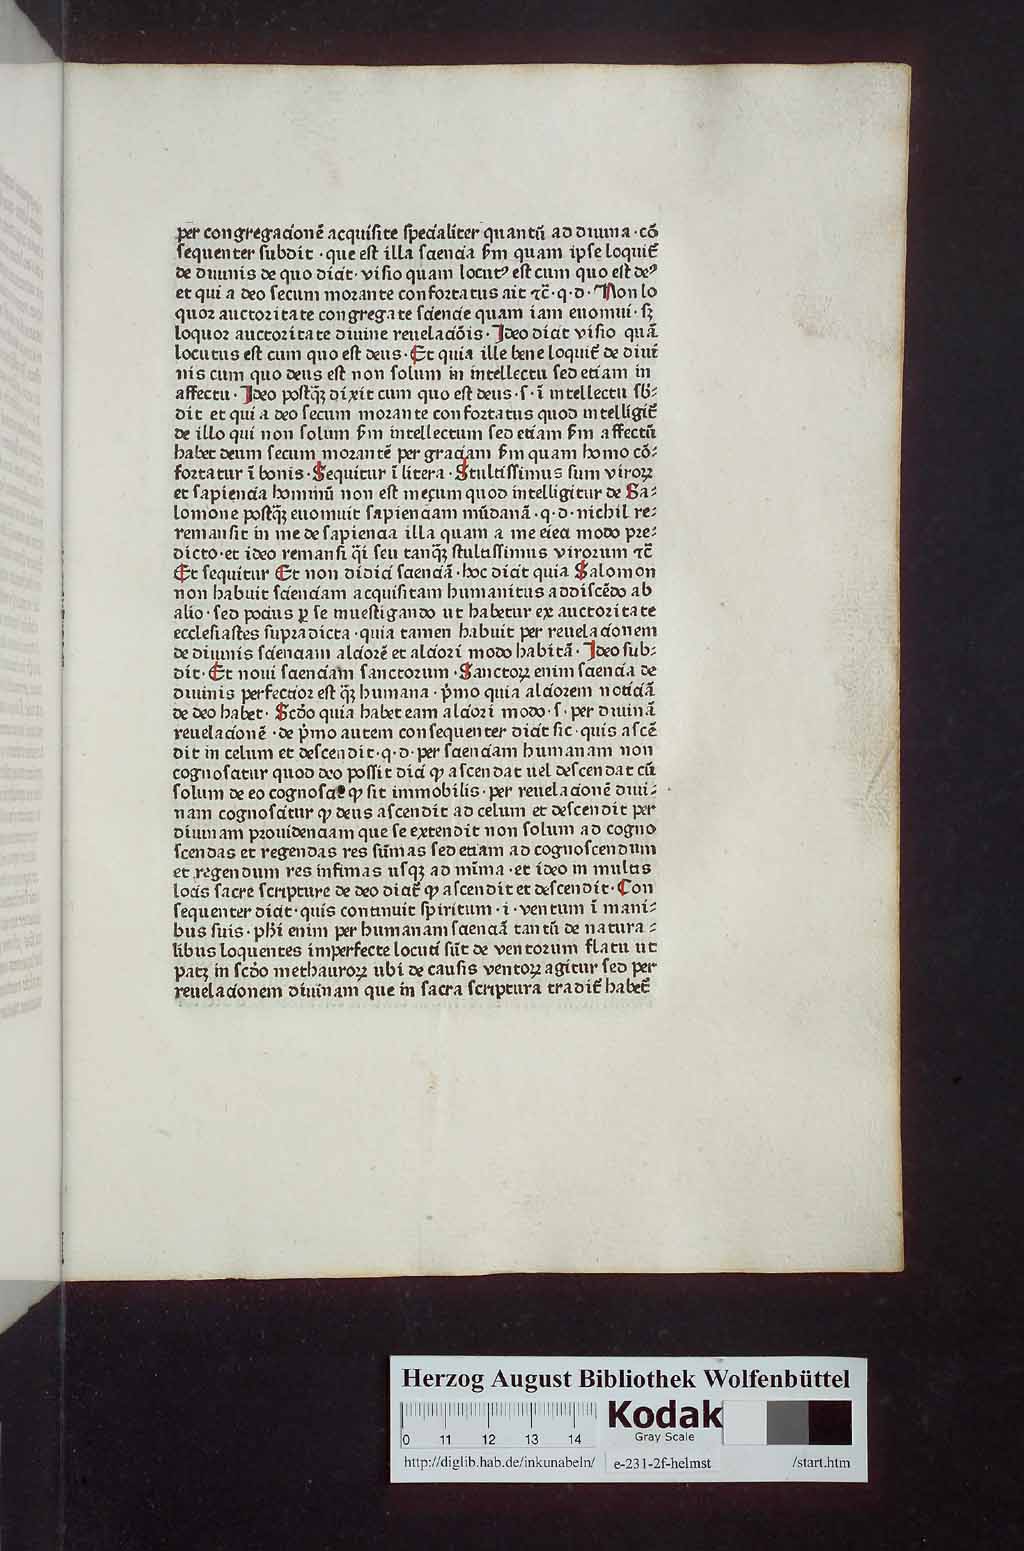 per congregacionē acquisite specialiter quantū ad diuina · cō
sequenter subdit · que est illa sciencia ẜm quam ipse loquit᷒
de diuinis de quo dicit · visio quam locutꝰ est cum quo est deꝰ
et qui a deo secum morante confortatus ait ⁊c̄ · q · d · Non lo
quor auctoritate congregate sciencie quam iam euomui · sꝫ
loquor auctoritate diuine reuelaciōis · Ideo dicit visio quā
locutus est cum quo est deus · Et quia ille bene loquit᷒ de diui
nis cum quo deus est non solum in intellectu sed etiam in
affectu · Ideo postq̄ꝫ dixit cum quo est deus · s · ī intellectu sb̄⸗
dit et qui a deo secum morante confortatus quod intelligit᷒
de illo qui non solum ẜm intellectum sed etiam ẜm affectū
habet deum secum morantē per graciam ẜm quam homo cō⸗
fortatur ī bonis · Sequitur ī litera · Stultissimus sum viroꝝ
et sapiencia hominū non est mecum quod intelligitur de Sa⸗
lomone postq̄ꝫ euomuit sapienciam mūdanā · q · d · nichil re⸗
remansit in me de sapiencia illa quam a me eieci modo pre⸗
dicto · et ideo remansi q̄i seu tanq̄ꝫ stultissimus virorum ⁊c̄
Et sequitur Et non didici scienciā · hoc dicit quia Salomon
non habuit scienciam acquisitam humanitus addiscēdo ab
alio · sed pocius ꝑ se inuestigando ut habetur ex auctoritate
ecclesiastes supradicta · quia tamen habuit per reuelacionem
de diuinis scienciam alciorē et alciori modo habitā · Ideo sub⸗
dit · Et noui scienciam sanctorum · Sanctoꝝ enim sciencia de
diuinis perfectior est q̄ꝫ humana · p̄mo quia alciorem noticiā
de deo habet · Scd̄o quia habet eam alciori modo · s · per diuinā
reuelacionē · de p̄mo autem consequenter dicit sic · quis ascē
dit in celum et descendit · q · d · per scienciam humanam non
cognoscitur quod deo possit dici ꝙ ascendat uel descendat cū
solum de eo cognoscat ꝙ sit immobilis · per reuelacionē diui⸗
nam cognoscitur ꝙ deus ascendit ad celum et descendit per
diuinam prouidenciam que se extendit non solum ad cogno
scendas et regendas res sūmas sed etiam ad cognoscendum
et regendum res infimas usqꝫ ad mīma · et ideo in multis
locis sacre scripture de deo dicit᷒ ꝙ ascendit et descendit · Con
sequenter dicit · quis continuit spiritum · i · ventum ī mani⸗
bus suis · ph̄i enim per humanam scienciā tantū de natura⸗
libus loquentes imperfecte locuti sūt de ventorum flatu ut
patꝫ in scd̄o methauroꝝ ubi de causis ventoꝝ agitur sed per
reuelacionem diuinam que in sacra scriptura tradit᷒ habet᷒
Herzog August Bibliothek Wolfenbüttel
0 11 12 13 14
Kodak
Gray Scale
http://diglib.hab.de/inkunabeln/ e-231-2f-helmst /start.htm